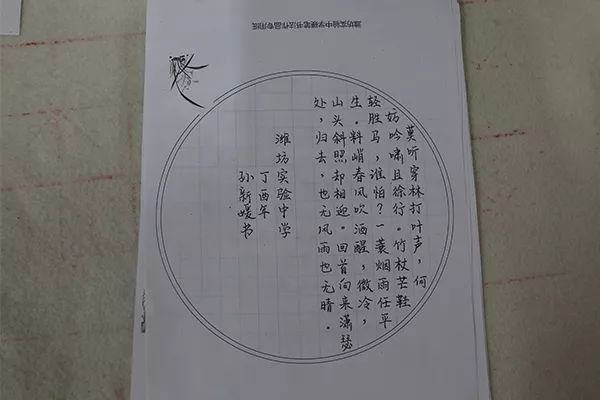 潍坊实验中学硬笔书法作品专用纸
莫听穿林打叶声，何
妨吟啸且徐行。竹杖芒鞋
轻胜马，谁怕？一蓑烟雨任平
生。料峭春风吹酒醒，微冷，
山头斜照却相迎。回首向来潇瑟
处，归去，也无风雨也无晴。
潍坊实验中学
丁酉年
孙新媛书